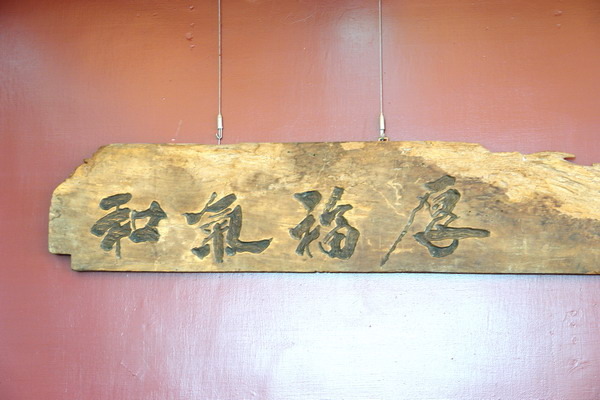 和氣福厚